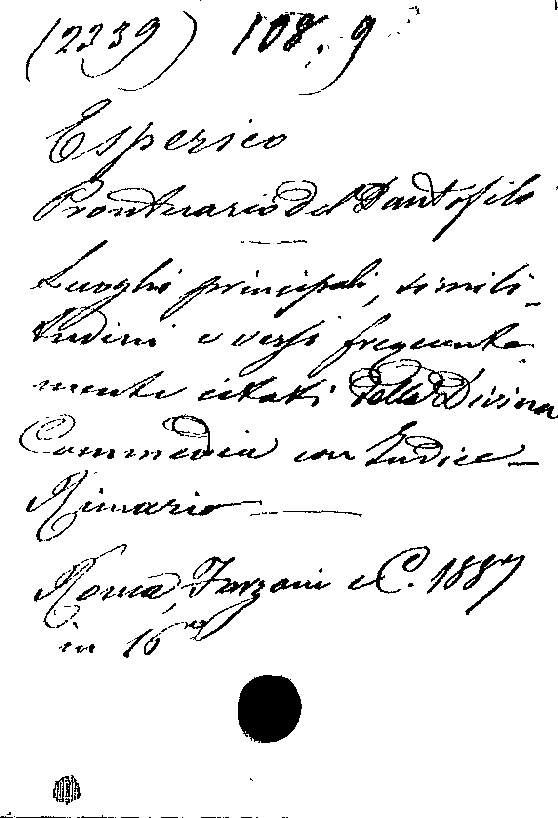 (2339) 108. 9
Esperico
Prontuario del Dantofilo
Luoghi principali, simili-
tudini e versi frequente
mente citati della Divina
Commedia con Indice
Rimario
Roma, Forzani e C. 1887
in 16º